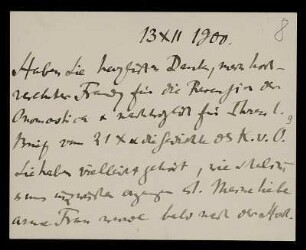 13 XII 1900.
8
Haben Sie herzlichsten Dank, mein hoch-
verehrter Freund für die Recension der
Onomastica & nachträglich für Ihren l.
Brief vom 21 X & die Gedichte des K. v. O.
Sie haben vielleicht gehört, wie es
uns inzwischen ergangen ist. Meine liebe
arme Frau wurde bald nach der